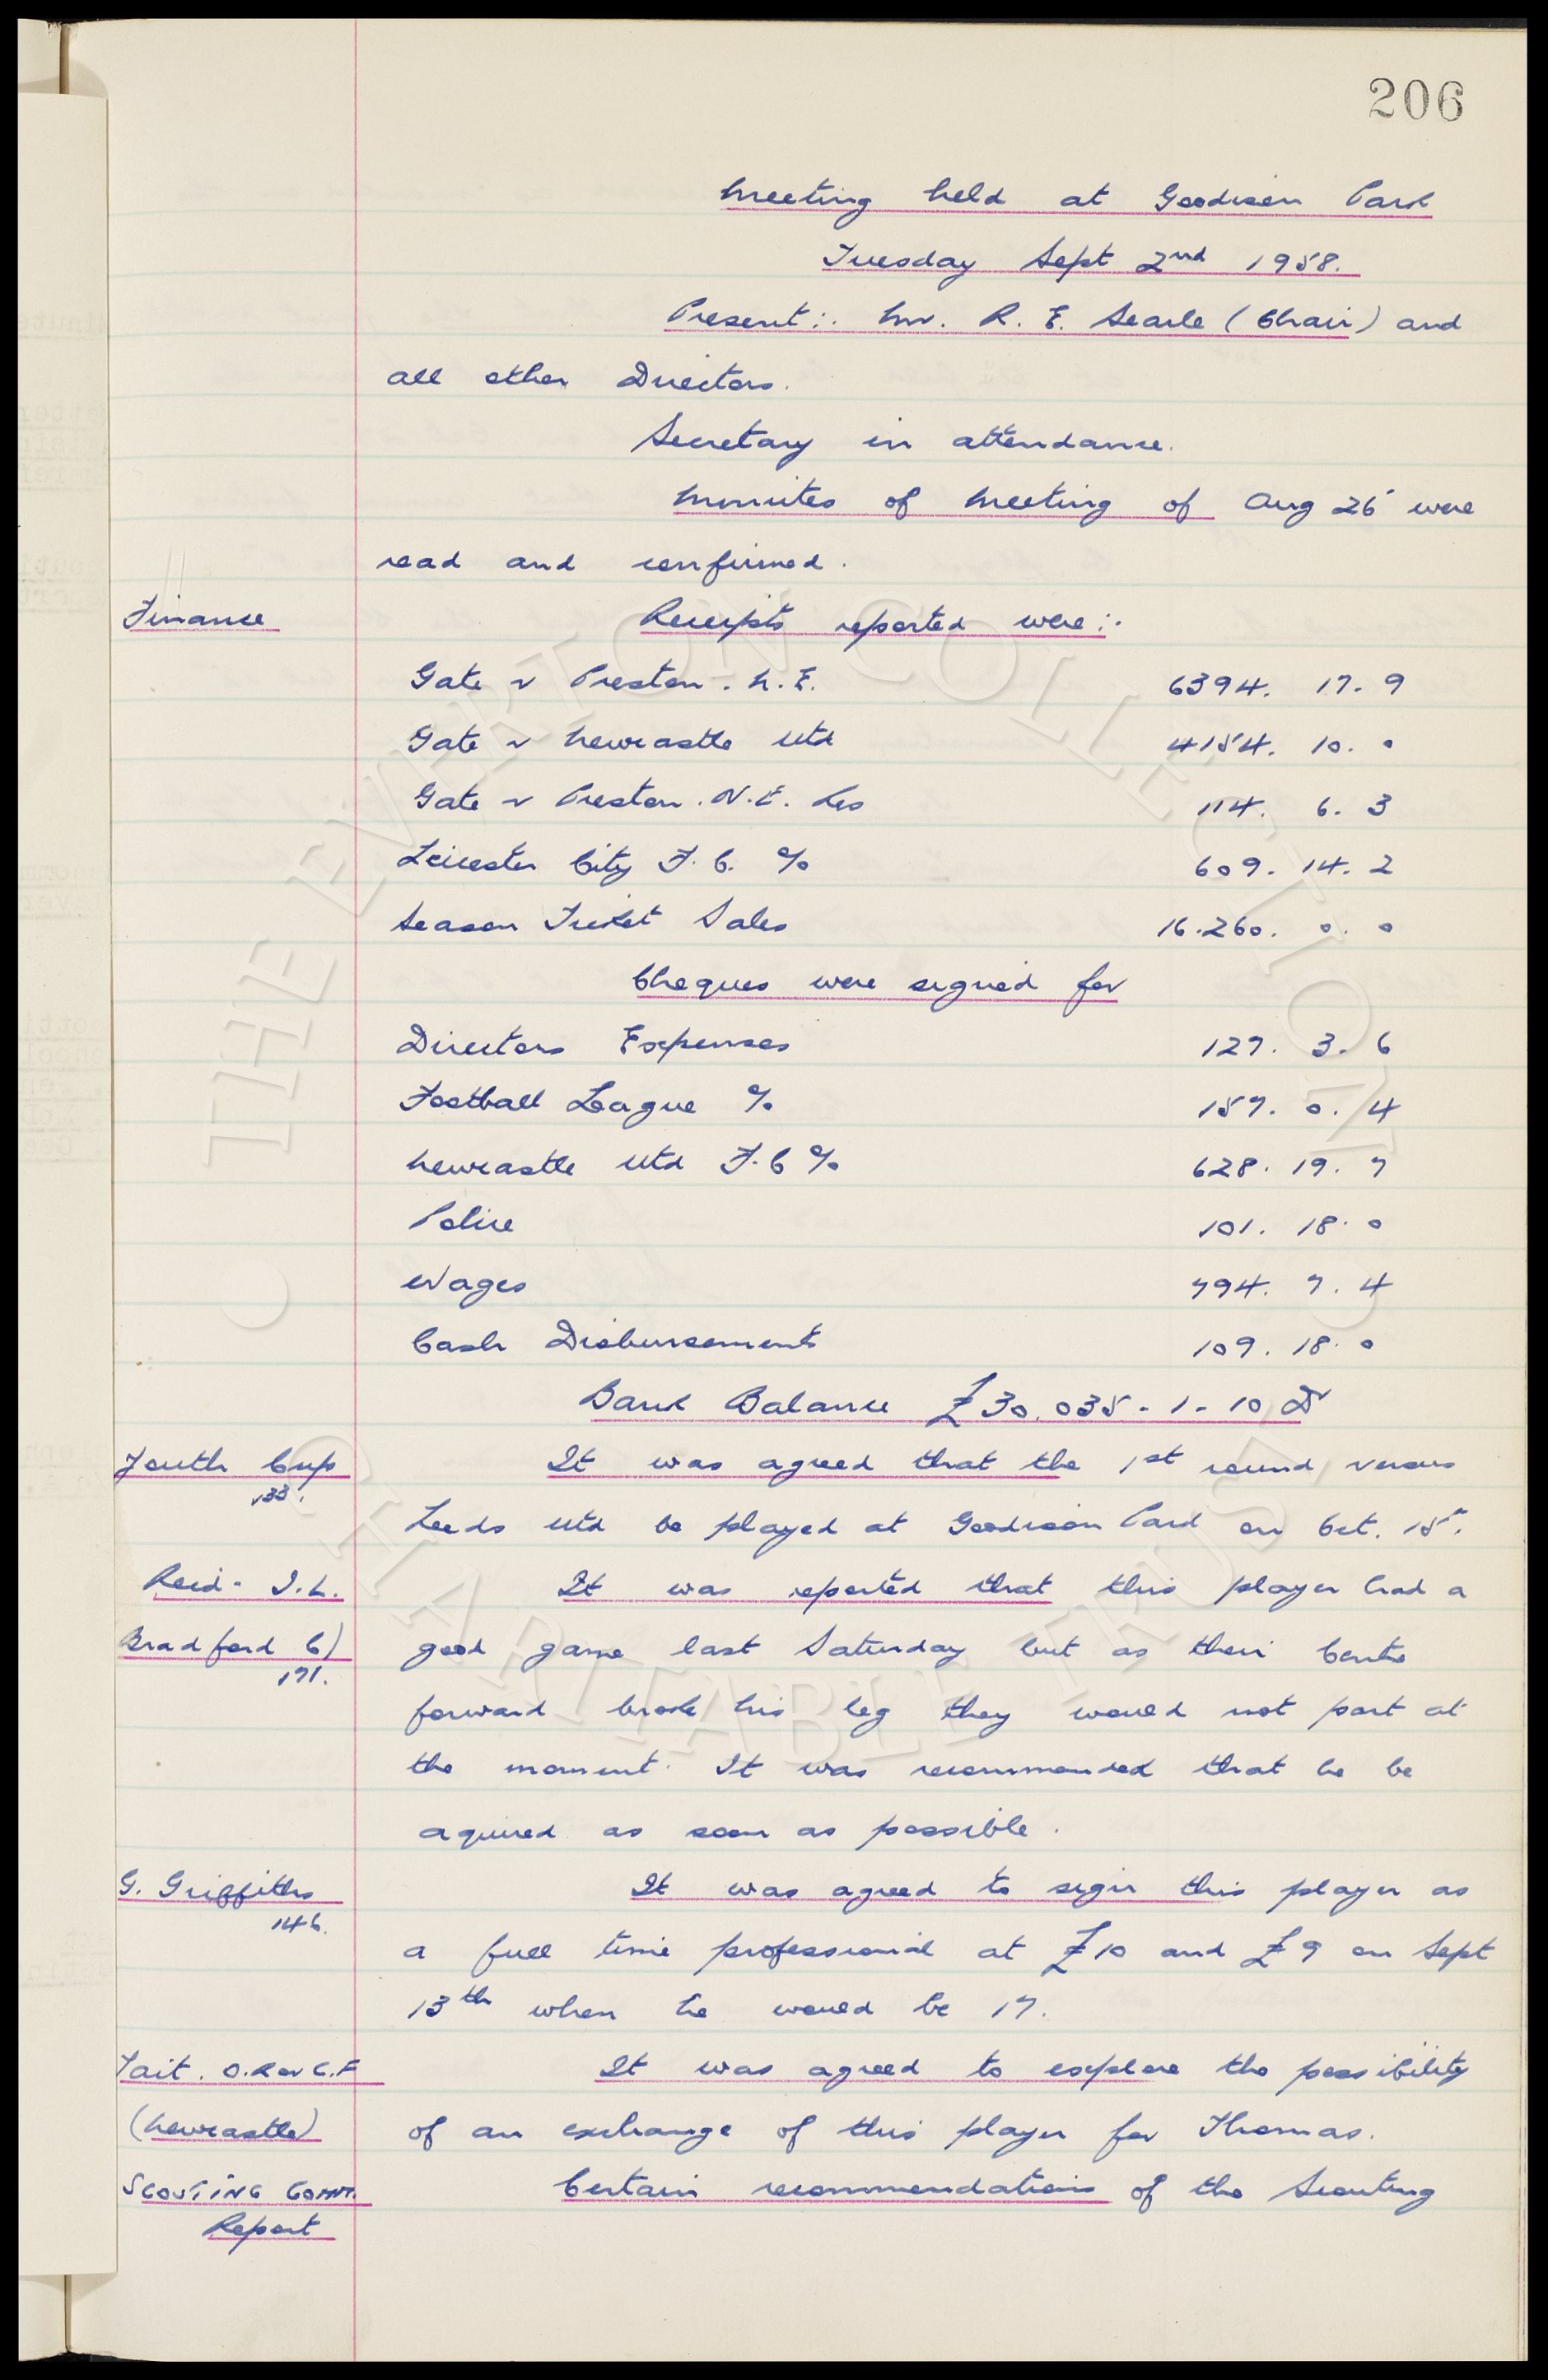 206
Meeting held at Goodison Park
Tuesday Sept 2nd 1958.
Present:. Mr. R. E. Searle (Chair) and
all other Directors.
Secretary in attendance.
Minutes of Meeting of Aug 26 were
read and confirmed.
Finance Receipts reported were:.
Gate v Preston. N.E. 6394. 17. 9
Gate v Newcastle Utd 4154. 10. 0
Gate v Preston. N.E. Res 114. 6. 3
Leicester City F.C. % 609. 14. 2
Season Ticket Sales 16.260. 0. 0
Cheques were signed for
Directors Expenses 127. 3. 6
Football League % 157. 0. 4
Newcastle Utd F.C % 628. 19. 7
Police 101. 18. 0
Wages 794. 7. 4
Cash Disbursements 109. 18. 0
Bank Balance £30.035-1-10 Dr
Youth Cup It was agreed that the 1st round versus
133.
Leeds Utd be played at Goodison Park on Oct. 15.
Reid - I.L. It was reported that this player had a
Bradford C) good game last Saturday but as their Centre
171.
forward broke his leg they would not part at
the moment. It was recommended that he be
aquired as soon as possible.
G. Griffiths It was agreed to sign this player as
146.
a full time professional at £10 and £9 on Sept
13th when he would be 17.
Tait. O.R or C.F It was agreed to explore the possibility
(Newcastle) of an exchange of this player for Thomas.
SCOUTING COMM. Certain recommendations of the Scouting
Report
THE EVERTON COLLECTION
CHARITABLE TRUST